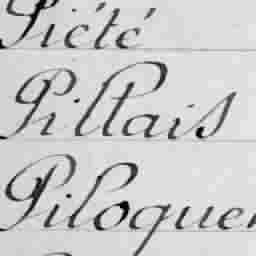 Piété
Pillais
Piloquer